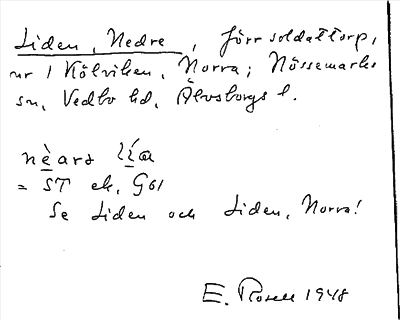 Liden, Nedre, förr soldattorp,
nr 1 Kölviken, Norra; Nössemarks
sn, Vedbo hd, Älvsborgs l.
nèarə líɑ
= ST ek. G61
Se Liden och Liden, Norra!
E. Rosell 1948